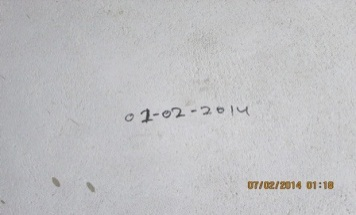 01-02-2014
07/02/2014 01:18